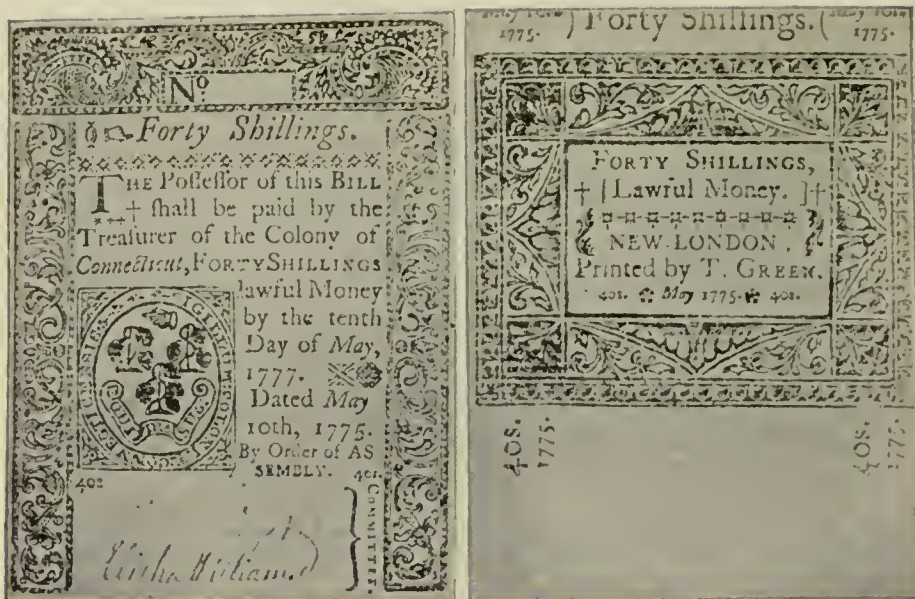 No.
Forty Shillings.
THE Poſſeſſor of this BILL
ſhall be paid by the
Treaſurer of the Colony of
Connecticut, FORTY SHILLINGS
lawful Money
by the tenth
Day of May,
1777.
Dated May
10th, 1775.
By Order of AS
SEMBLY.
40s.
COMMITTEE.
Elisha William
1775. ) Forty Shillings. ( May 10th 1775.
FORTY SHILLINGS,
[Lawful Money. ]
NEW-LONDON,
Printed by T. GREEN.
40s. May 1775. 40s.
40S.
1775.
40S.
1775.